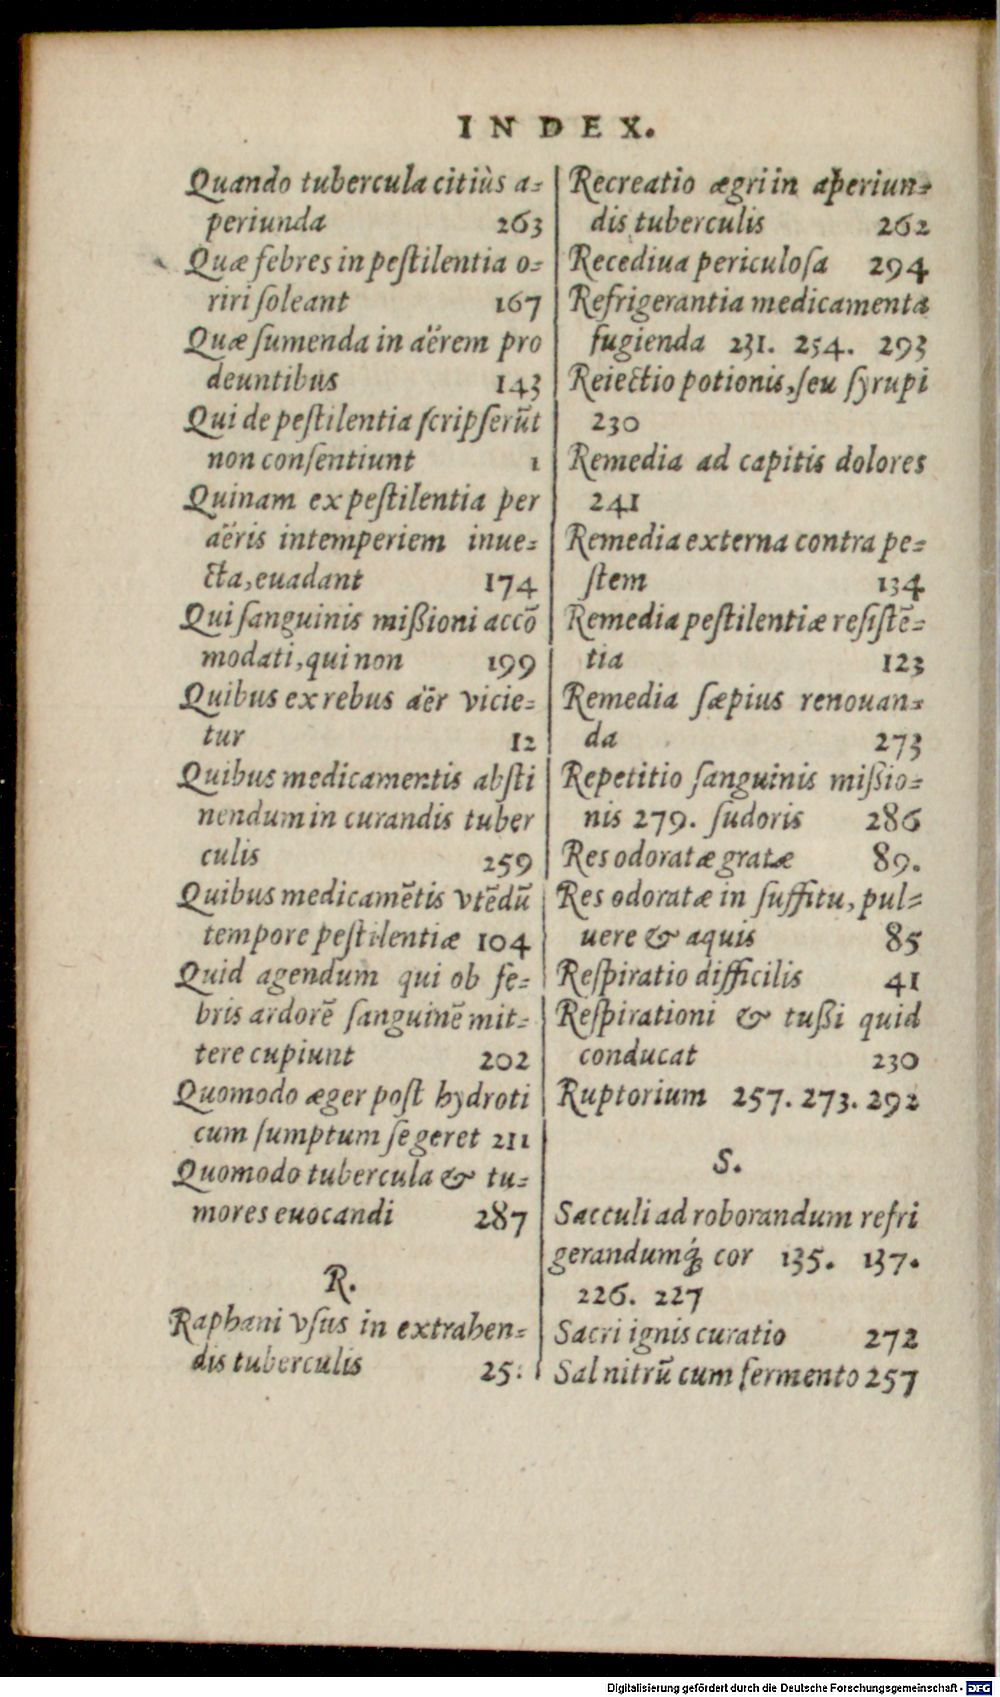 INDEX.
Quando tubercula citiùs a-
periunda 263
Quæ febres in peſtilentia o-
riri ſoleant 167
Quæ ſumenda in aërem pro
deuntibus 143
Qui de peſtilentia ſcripſerūt
non conſentiunt 1
Quinam ex peſtilentia per
aëris intemperiem inue-
cta, euadant 174
Qui ſanguinis mißioni accō
modati, qui non 199
Quibus ex rebus aër vicie-
tur 12
Quibus medicamentis abſti
nendum in curandis tuber
culis 259
Quibus medicamētis vtēdū
tempore peſtilentiæ 104
Quid agendum qui ob fe-
bris ardorē ſanguinē mit-
tere cupiunt 202
Quomodo æger poſt hydroti
cum ſumptum ſe geret 211
Quomodo tubercula & tu-
mores euocandi 287
R.
Raphani vſus in extrahen-
dis tuberculis 25
Recreatio ægri in aperiun-
dis tuberculis 262
Recediua periculoſa 294
Refrigerantia medicamenta
fugienda 231. 254. 293
Reiectio potionis, ſeu ſyrupi
230
Remedia ad capitis dolores
241
Remedia externa contra pe-
ſtem 134
Remedia peſtilentiæ reſiſtē-
tia 123
Remedia ſæpius renouan-
da 273
Repetitio ſanguinis mißio-
nis 279. ſudoris 286
Res odoratæ gratæ 89.
Res odoratæ in ſuffitu, pul-
uere & aquis 85
Reſpiratio difficilis 41
Reſpirationi & tußi quid
conducat 230
Ruptorium 257. 273. 292
S.
Sacculi ad roborandum refri
gerandumq́ꝫ cor 135. 137.
226. 227
Sacri ignis curatio 272
Sal nitrū cum fermento 257
Digitalisierung gefördert durch die Deutsche Forschungsgemeinschaft - DFG